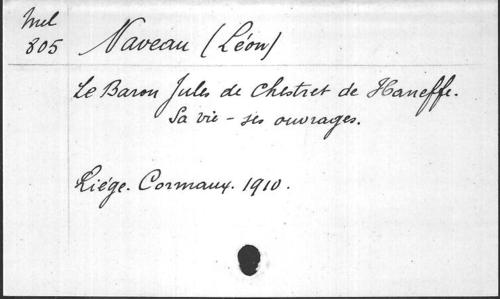 Mel
805
Naveau (Léon)
Le Baron Jules de Chestret de Haneffe.
Sa vie - ses ouvrages.
Liége. Cormaux. 1910.